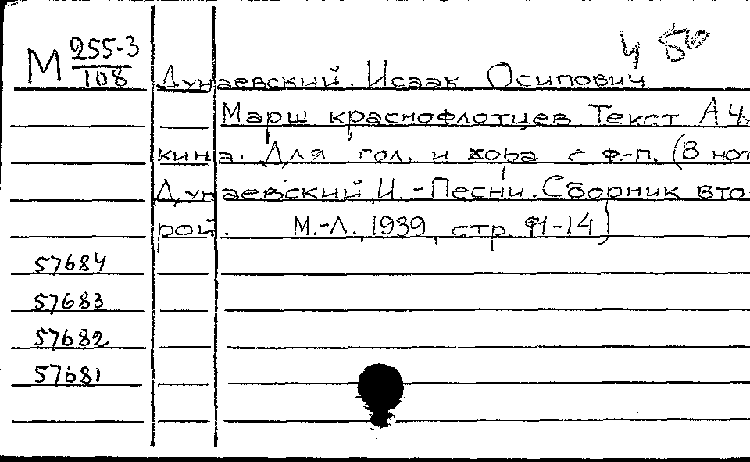 М 255-3
108
4 50
Дунаевский Исаак Осипович
Марш краснофлотцев Текст А.
кина. Для гол. и хора с ф-п. (В нот
Дунаевский И. - Песни. Сборник вто-
рой. М.-Л., 1939, стр. 11-14)
57684
57683
57682
57681